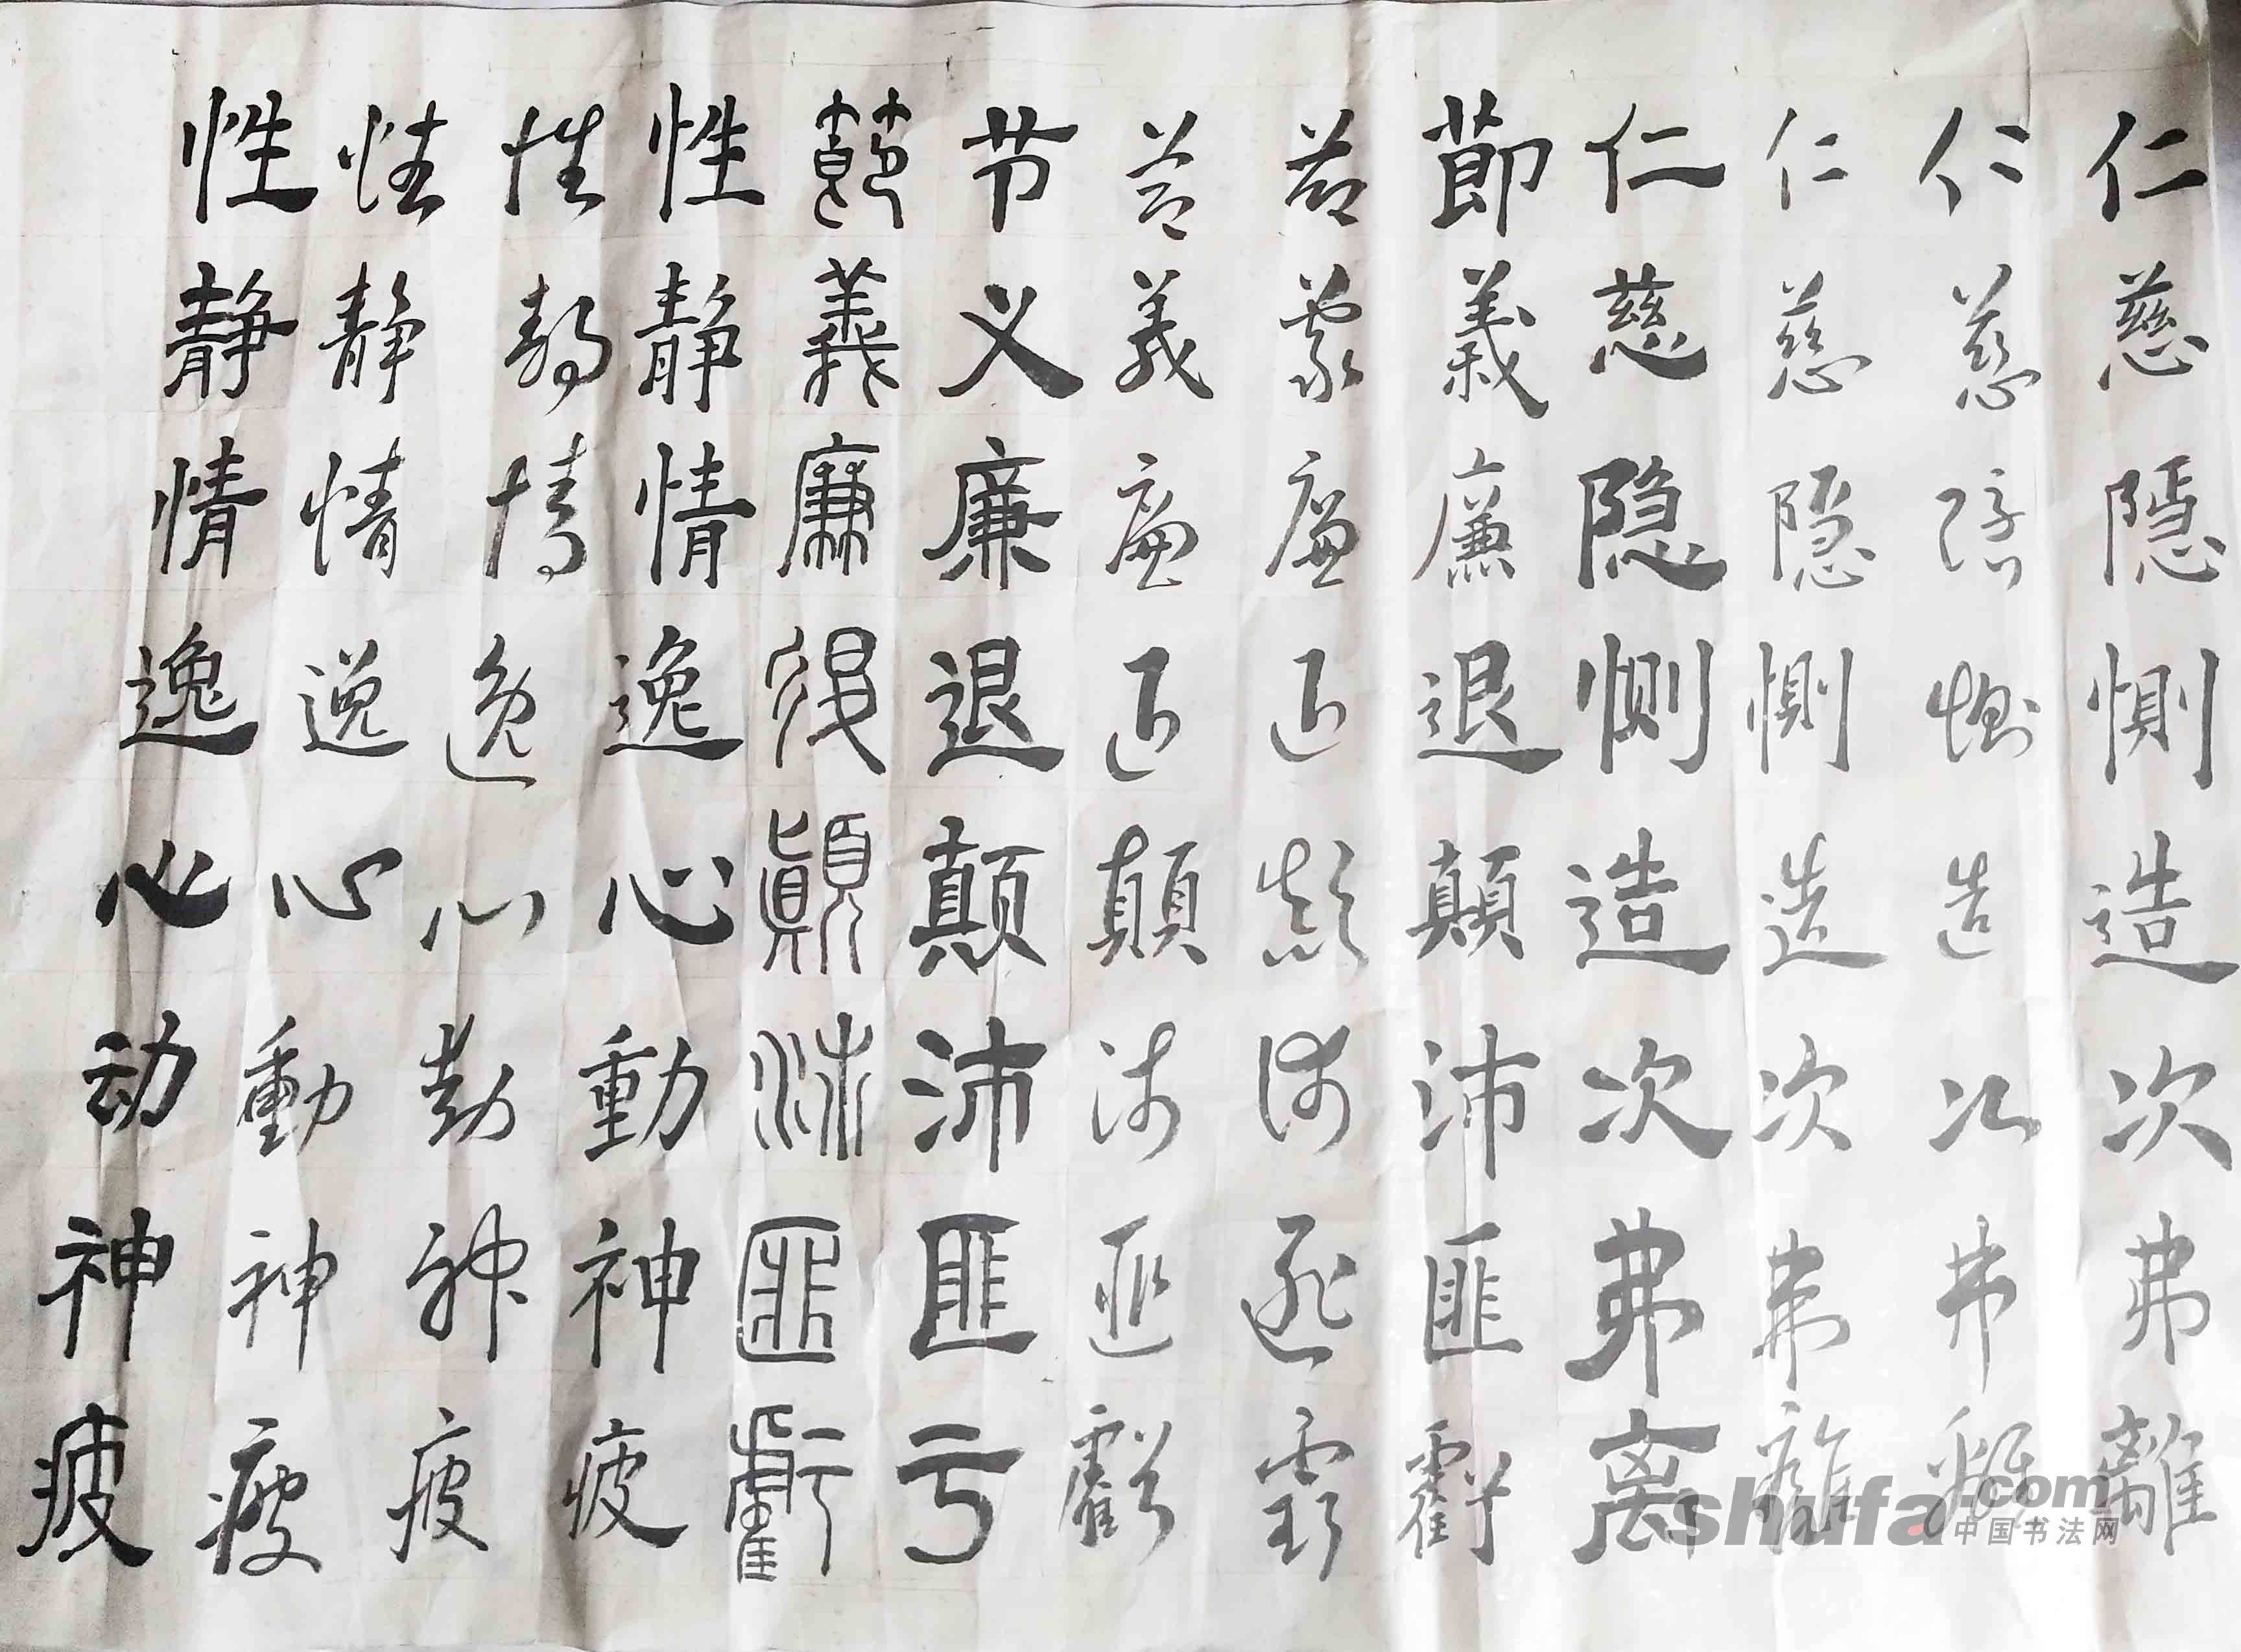 仁慈隱惻造次弗離
仁慈隱惻造次弗離
仁慈隱惻造次弗離
仁慈隐恻造次弗离
節義廉退顛沛匪虧
節義廉退顛沛匪虧
節義廉退顛沛匪虧
节义廉退颠沛匪亏
節義廉退顛沛匪虧
性静情逸心動神疲
性静情逸心動神疲
性静情逸心動神疲
性静情逸心动神疲
shufa.com
中国书法网